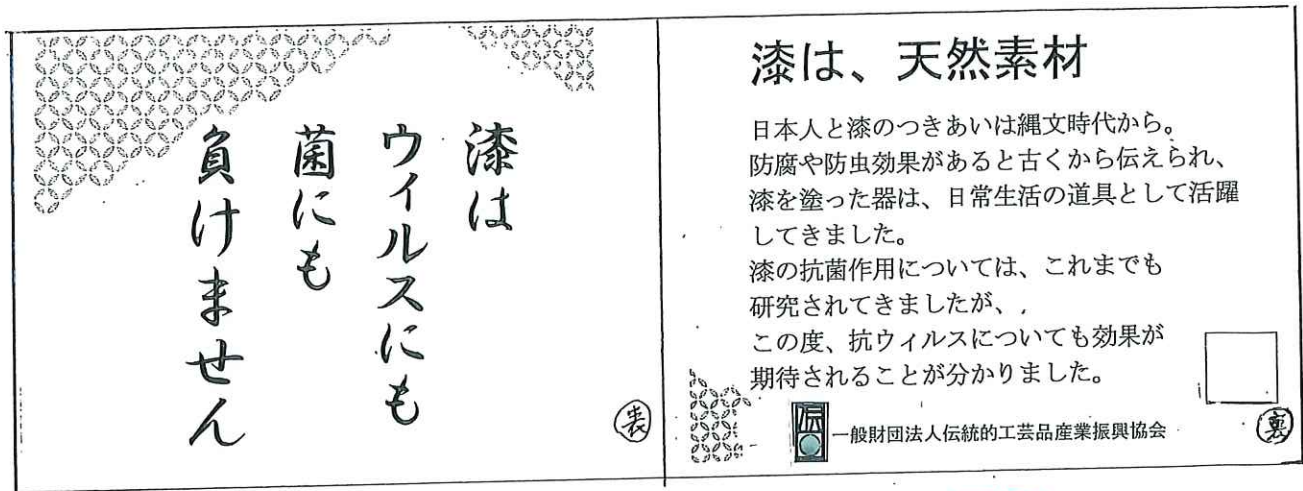 漆は
ウィルスにも
菌にも
負けません
表
漆は、天然素材
日本人と漆のつきあいは縄文時代から。
防腐や防虫効果があると古くから伝えられ、
漆を塗った器は、日常生活の道具として活躍
してきました。
漆の抗菌作用については、これまでも
研究されてきましたが、
この度、抗ウィルスについても効果が
期待されることが分かりました。
一般財団法人伝統的工芸品産業振興協会
裏